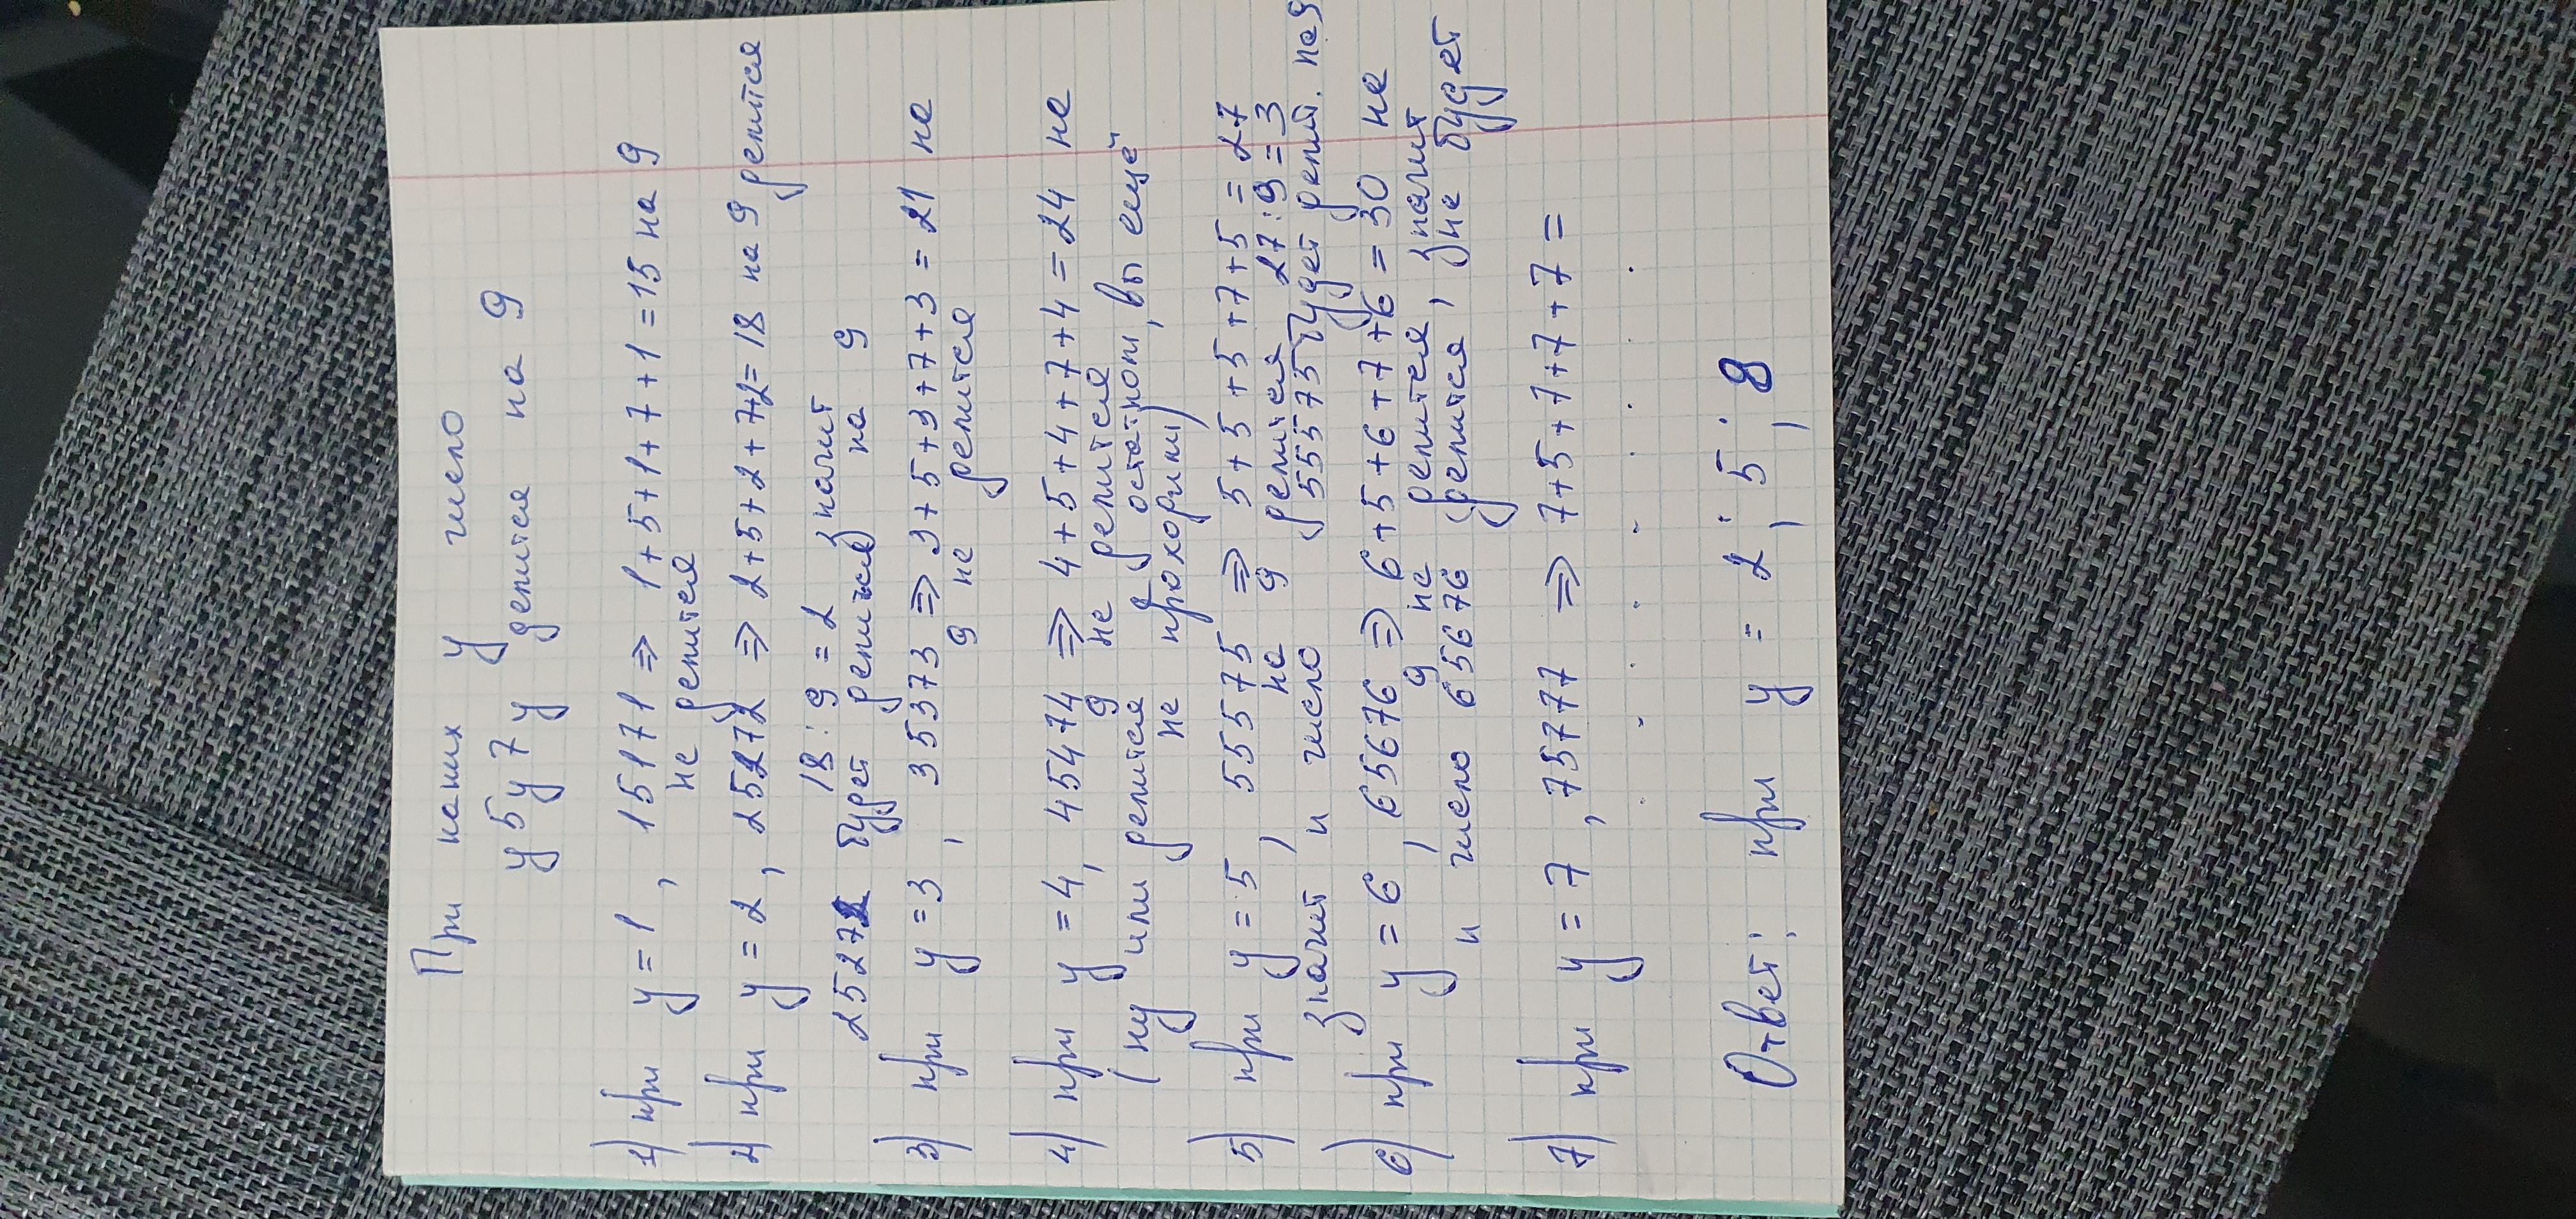 При каких у число
у5у7у делится на 9
1) при у=1, 15171 => 1+5+1+7+1=15 на 9
не делится
2) при у=2, 25272 => 2+5+2+7+2=18 на 9 делится
18:9=2 значит
25272 будет делиться на 9
3) при у=3, 35373 => 3+5+3+7+3=21 не
9 не делится
4) при у=4, 45474 => 4+5+4+7+4=24 не
9 не делится
(ну или делится остатком, вы ещё
не проходили)
5) при у=5, 55575 => 5+5+5+7+5=27
на 9 делится 27:9=3
значит и число 55575 будет делит. на 9
6) при у=6, 65676 => 6+5+6+7+6=30 не
9 не делится, значит
и число 65676 не будет
делится
7) при у=7, 75777 => 7+5+7+7+7=
. . . . . . .
Ответ: при у = 2; 5; 8